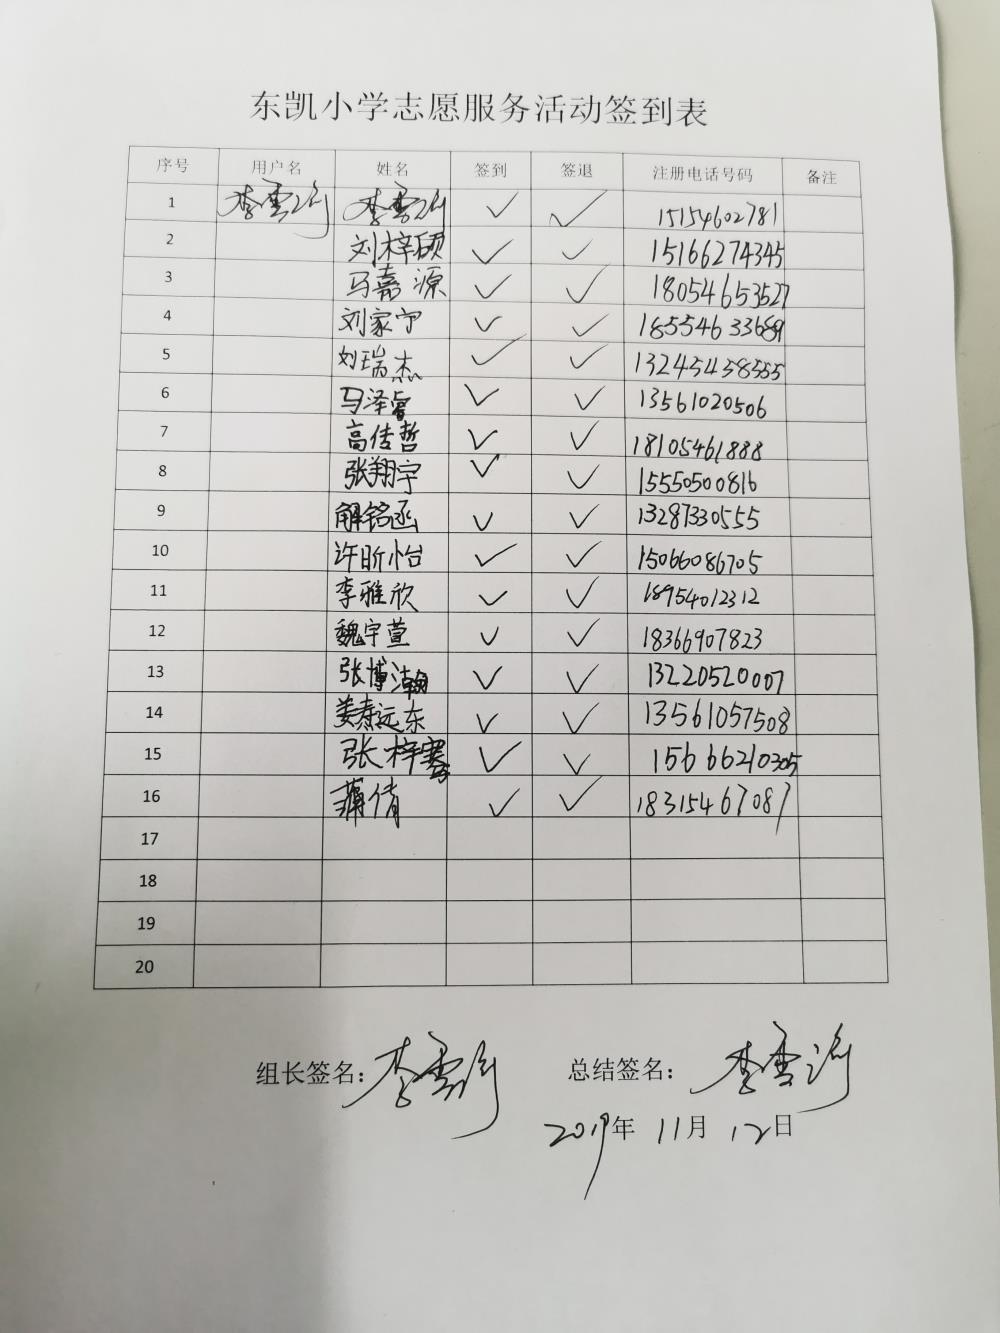 东凯小学志愿服务活动签到表
序号 用户名 姓名 签到 签退 注册电话号码 备注
1 李雪 李雪 ✓ ✓ 15154602781
2 刘梓硕 ✓ ✓ 15166274345
3 马嘉源 ✓ ✓ 18054653527
4 刘家宁 ✓ ✓
5 刘瑞杰 ✓ ✓ 13245458555
6 马泽睿 ✓ ✓ 13561020506
7 高传哲 ✓ ✓ 18105461888
8 张翔宇 ✓ ✓ 15550500816
9 解铭函 ✓ ✓ 13287330555
10 许昕怡 ✓ ✓ 15066086705
11 李雅欣 ✓ ✓ 18954012312
12 魏宇萱 ✓ ✓ 18366907823
13 张博瀚 ✓ ✓ 13220520007
14 姜泰远东 ✓ ✓ 13561057508
15 张梓骞 ✓ ✓ 15666210305
16 蒲倩 ✓ ✓ 18315467087
17
18
19
20
组长签名：李雪 总结签名：李雪
2019年 11月 12日